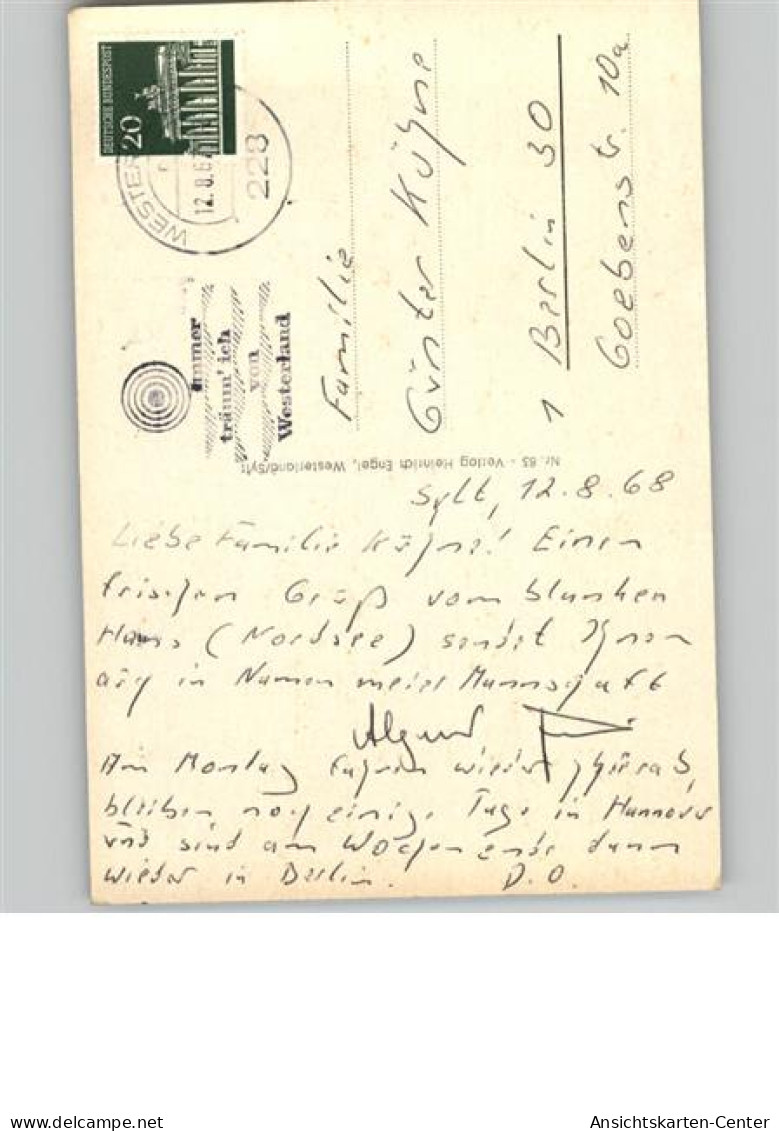 DEUTSCHE BUNDESPOST
20
WESTER
12.8.6
228
immer
träum' ich
von
Westerland
Familie
Günter Kühne
1 Berlin 30
Goebenstr. 10a
Nr. 63 - Verlag Heinrich Engel, Westerland/Sylt
Sylt, 12.8.68
Liebe Familie Kühne! Einen
frischen Gruß vom blanken
Hans (Nordsee) sendet Ihnen
auch im Namen meiner Mannschaft
Am Montag fahren wieder
bleiben noch einige Tage in Hannover
und sind am Wochenende dann
wieder in Berlin. D.O.
www.delcampe.net
Ansichtskarten-Center